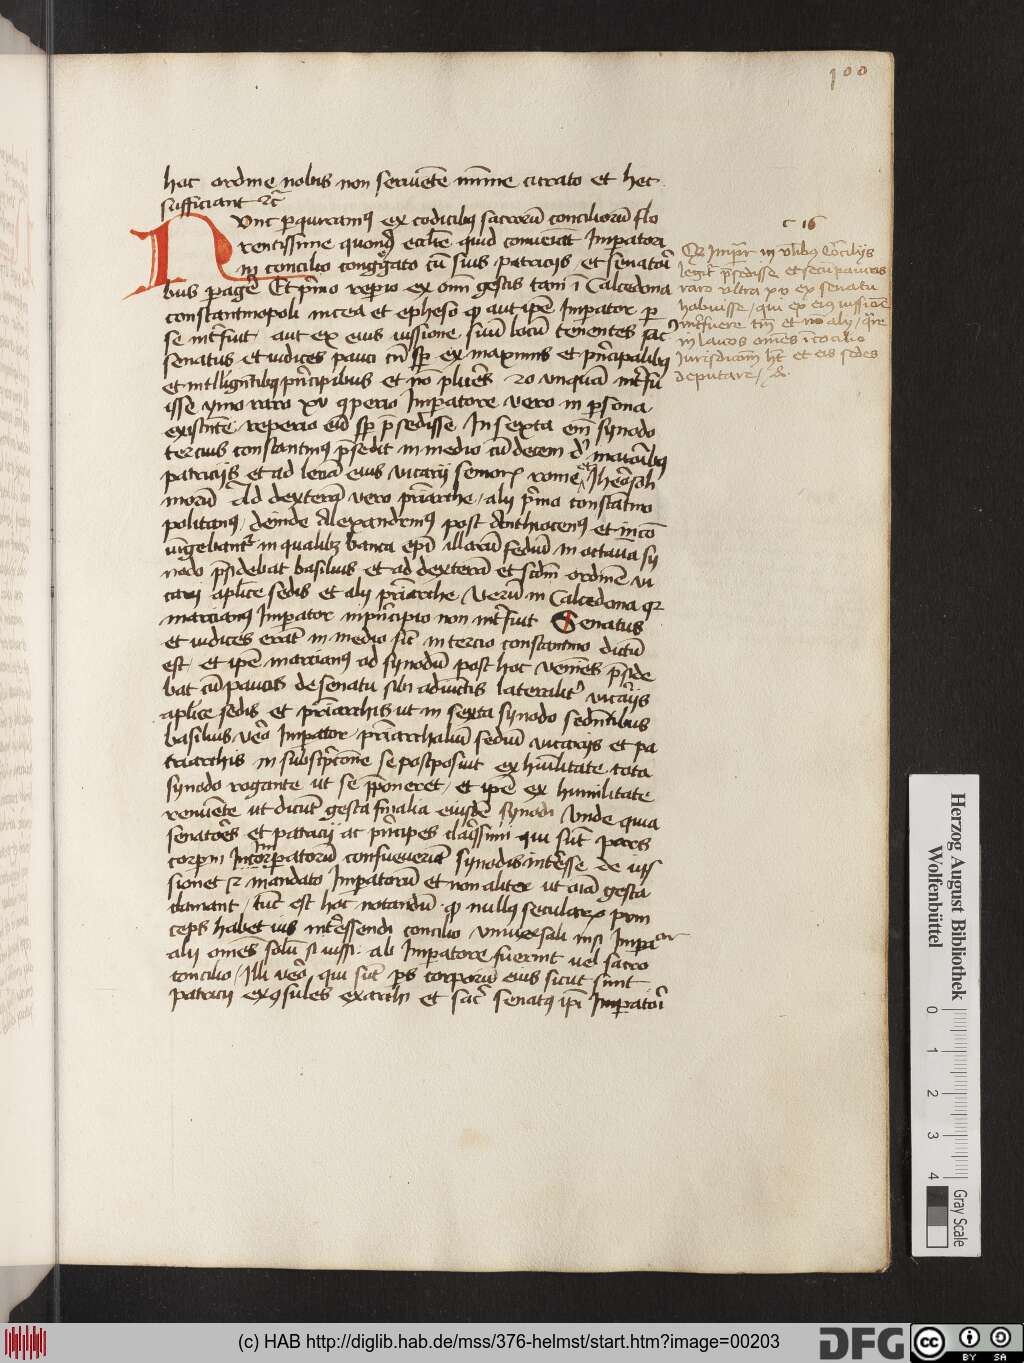 100
hac ordine nobis non seruiente minime citrato et hec
sufficiant etc
Nunc perquiramus ex codicibus sacrorum conciliorum flo
rentissime quondam ecclesie quid conueniat Imperatori
in concilio congregato cum suis patricijs et senatori
bus pagere Et primo reperio ex omnibus gestis tam in Calcedona
constantinopoli nicea et epheso quod aut ipse Imperator per
se interfuit aut ex eius iussione suum locum tenentes sacri
senatus et iudices pauci tamen semper ex maximis et principalibus
et intelligentibus principibus et non plures 20 unquam interfu
isse ymo raro xv reperio Imperatore vero in persona
existente reperio eum semper presedisse In sexta enim synodo
tercius constantinus presedit in medio cum decem de maioribus
patricijs et ad leuam eius vicarij senioris rome et Jherosali
morum Ad dexteram vero patriarche alij primo constantino
politanus deinde Alexandrinus post Anthiocenus et in co
iungebantur in qualibet banca episcopi illarum sedium in octaua sy
nodo presidebat basilius et ad dexteram et secundum ordinem vi
carij apostolice sedis et alij patriarche Verum in Calcedona quia
marcianus Imperator in principio non interfuit Senatus
et iudices erant in medio sicut in tercio constantino dictum
est et ipse marcianus ad synodum post hoc veniens preside
bat cum paucis de senatu sibi adiunctis lateraliter vicarijs
apostolice sedis et patriarchis ut in sexta synodo sedentibus
basilius vero Imperator patriarchalium sedium vicarijs et pa
triarchis in subscriptione se postposuit ex humilitate tota
synodo rogante ut se preponeret et ipse ex humilitate
renuente ut dicunt gesta finalia eiusdem synodi Unde quia
senatores et patricij ac principes clarissimi qui sunt pars
corporis Imperatorum consueuerunt synodis interesse de ius
sione et mandato Imperatorum et non aliter ut omnia gesta
clamant tunc est hoc notandum quod nullus secularis prin
ceps habet ius interessendi concilio vniuersali nisi Imperator
alij omnes solum si iussi ab Imperatore fuerint uel sacro
concilio Illi vero qui sunt pars corporum eius sicut sunt
patricij exconsules exarchi et sacer senatus ipsi Imperatori
c 16
Quia Imperator in vniuersalibus Concilijs
legitur presedisse et secum paucos
raro vltra xv ex senatu
habuisse qui ex eius iussione
interfuere tamen et non alij quare
in laicos omnes in concilio
Jurisdictionem habet et eis sedes
deputare etc.
Herzog August Bibliothek
Wolfenbüttel
0 1 2 3 4
Gray Scale
(c) HAB http://diglib.hab.de/mss/376-helmst/start.htm?image=00203
DFG
cc BY SA